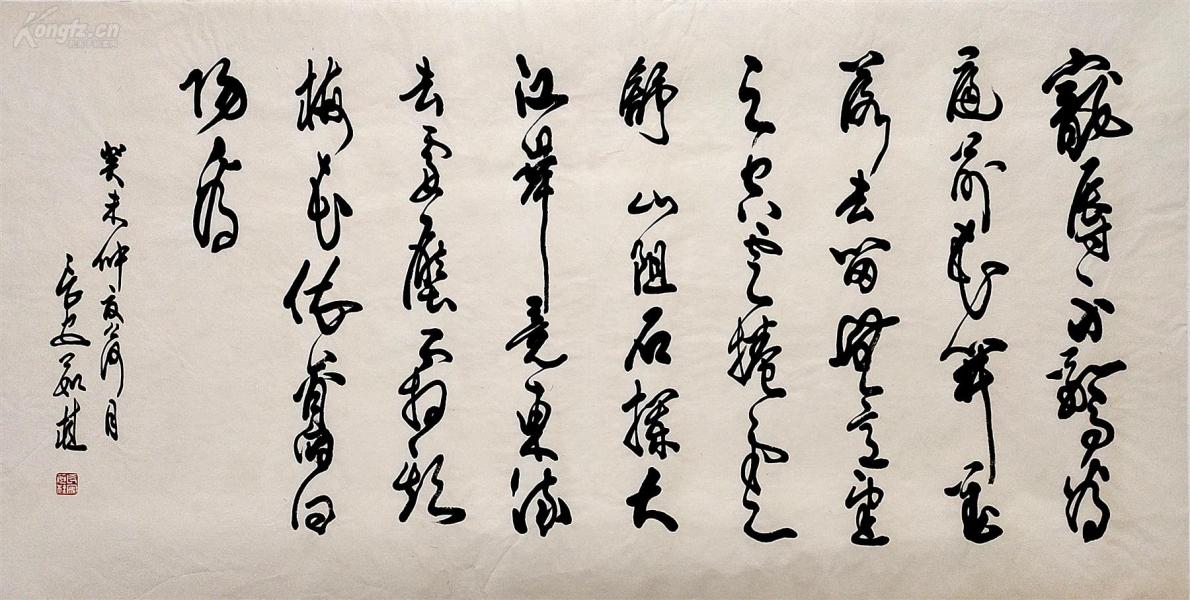 寵辱不驚看
庭前花開花
落去留無意望
天空雲捲雲
舒 山阻石攔大
江畢竟東流
去雪壓霜欺
梅花依舊向
陽
癸未仲夏荷月
長安茹桂
Kongfz.cn